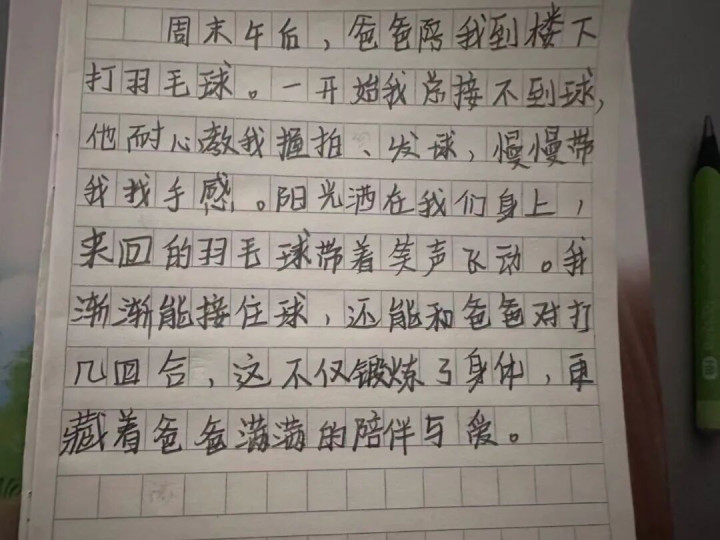 周末午后，爸爸陪我到楼下
打羽毛球。一开始我总接不到球，
他耐心教我握拍、发球，慢慢带
我找手感。阳光洒在我们身上，
来回的羽毛球带着笑声飞动。我
渐渐能接住球，还能和爸爸对打
几回合，这不仅锻炼了身体，更
藏着爸爸满满的陪伴与爱。